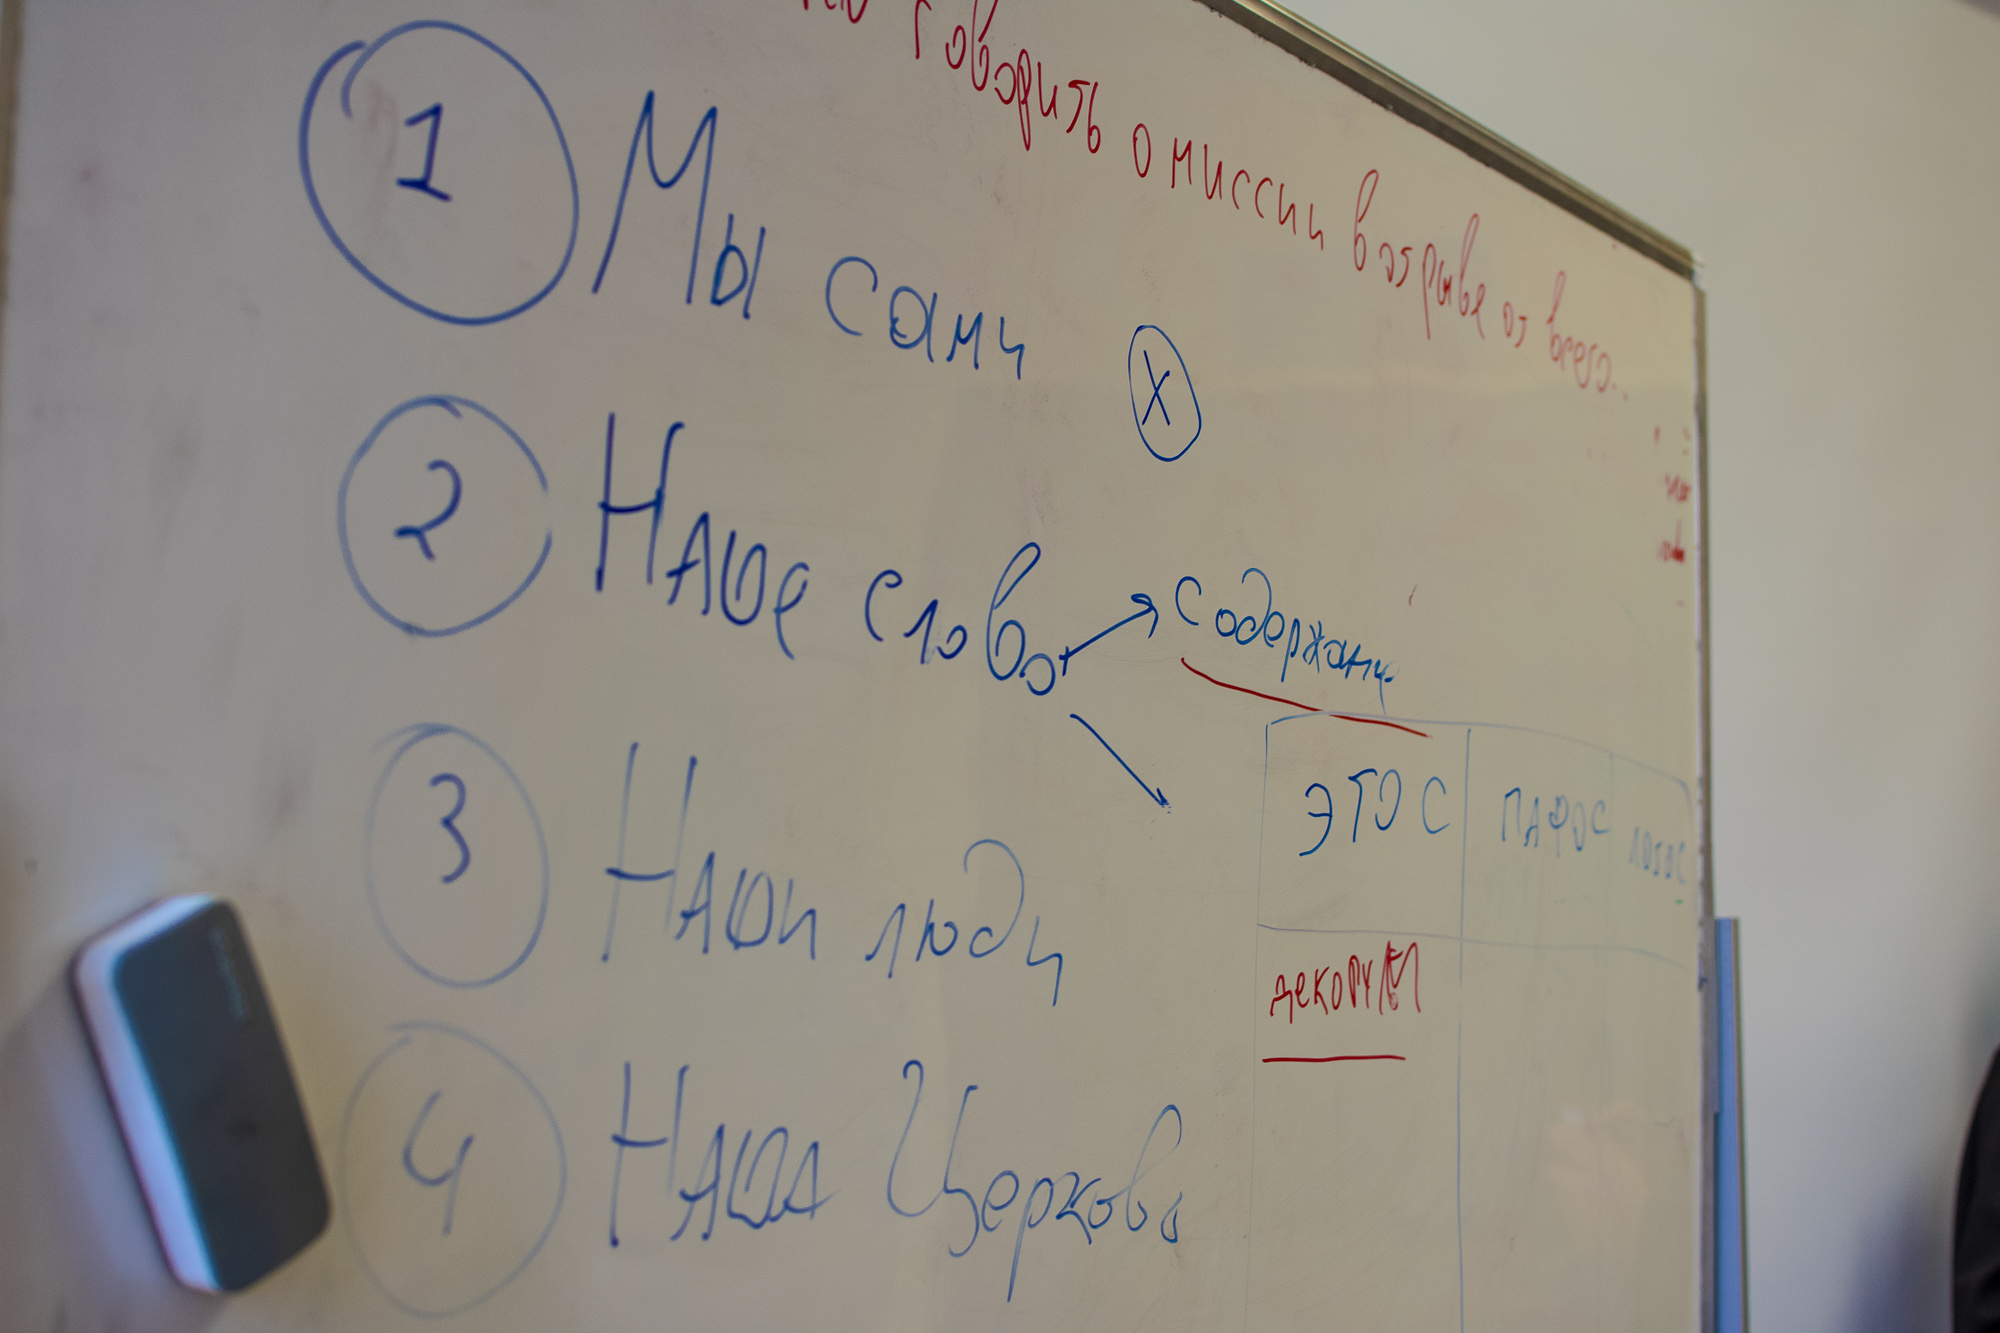 говорить о миссии в отрыве от всего...
1 Мы сами
X
2 Наше слово
содержание
3 Наши люди
ЭТОС ПАФОС ЛОГОС
декорум
4 Наша Церковь